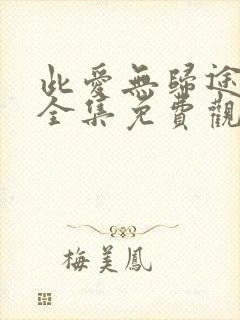 此愛無歸途
全集免費觀
梅美鳳